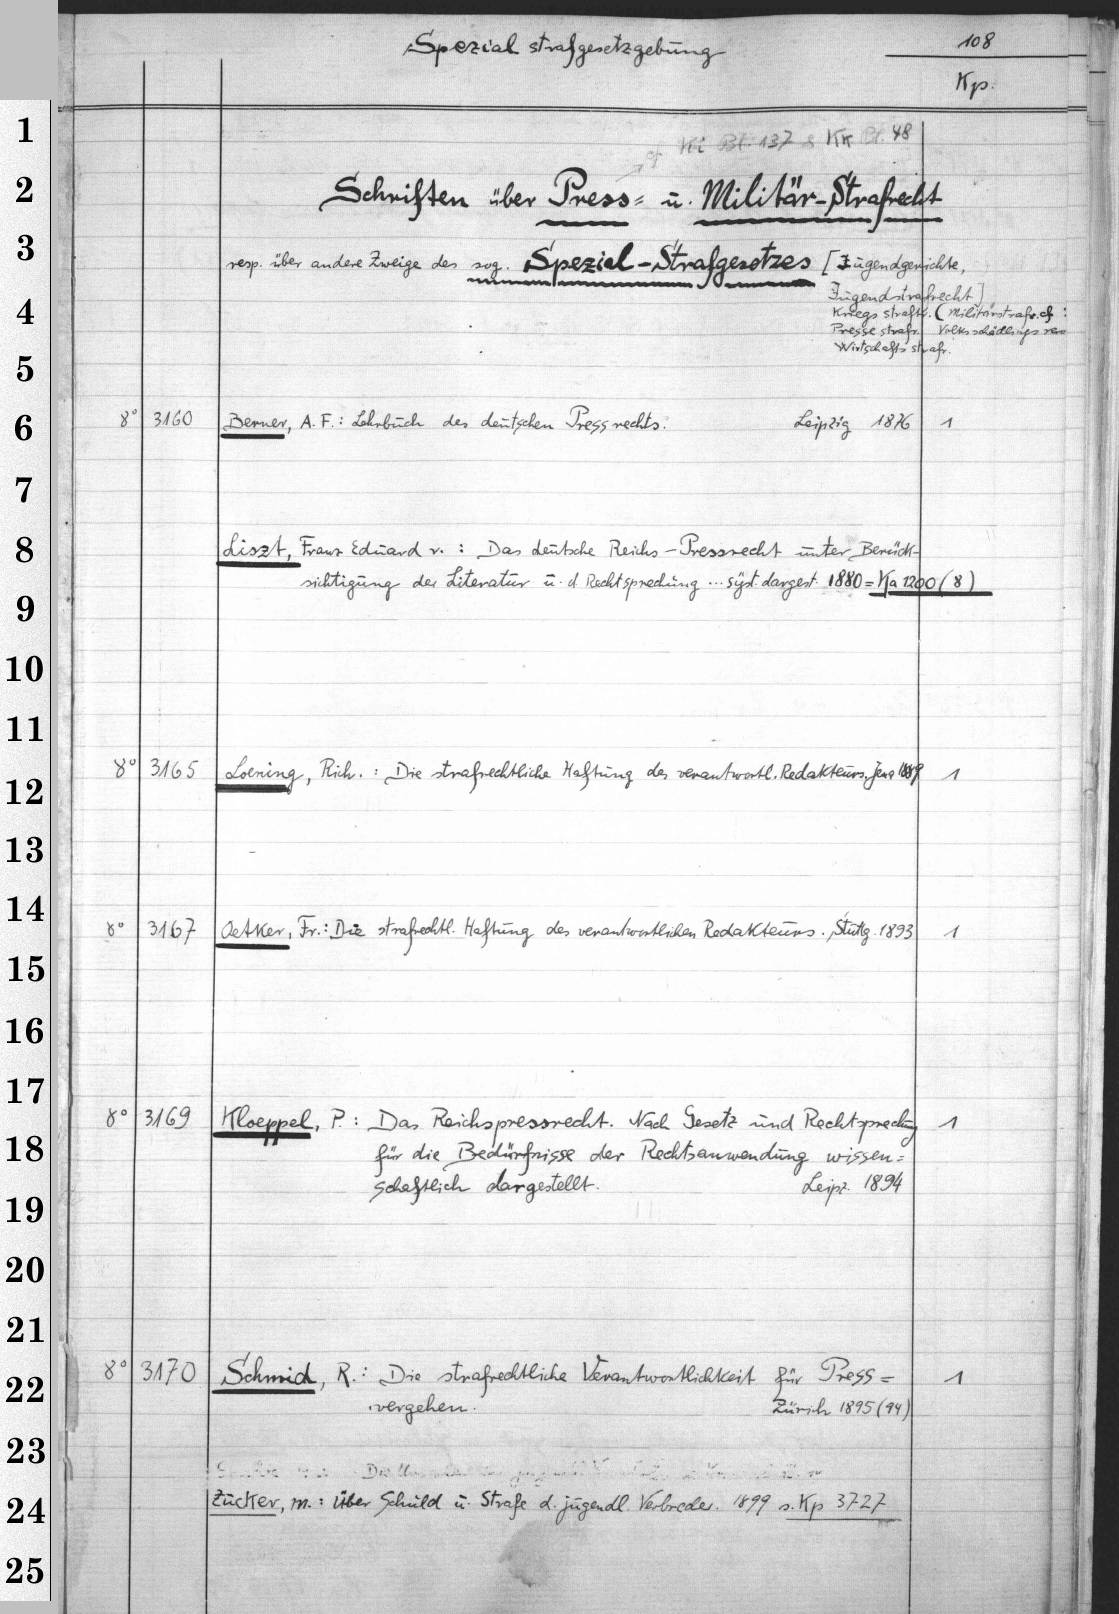 Spezialstrafgesetzgebung
108
Kp.
cf Ki Bl. 137 & Kk Bl. 48
Schriften über Press= u. Militär-Strafrecht
resp. über andere Zweige des sog. Spezial-Strafgesetzes [Jugendgerichte,
Jugendstrafrecht]
Kriegsstrafr. (Militärstrafr. cf:
Pressestrafr. Volksschädlings
Wirtschaftsstrafr.
1
2
3
4
5
6
7
8
9
10
11
12
13
14
15
16
17
18
19
20
21
22
23
24
25
8° 3160 Berner, A. F.: Lehrbuch des deutschen Pressrechts. Leipzig 1876 1
Liszt, Franz Eduard v. : Das deutsche Reichs-Pressrecht unter Berück-
sichtigung der Literatur u. d Rechtsprechung ... syst. dargest. 1880 = Kja 1200 (8)
8° 3165 Loening, Rich. : Die strafrechtliche Haftung des verantwortl. Redakteurs. Jena 1889 1
8° 3167 Oetker, Fr.: Die strafrechtl. Haftung des verantwortlichen Redakteurs. Stuttg. 1893 1
8° 3169 Kloeppel, P. : Das Reichspressrecht. Nach Gesetz und Rechtsprechung 1
für die Bedürfnisse der Rechtsanwendung wissen=
schaftlich dargestellt. Leipz. 1894
8° 3170 Schmid, R. : Die strafrechtliche Verantwortlichkeit für Press= 1
vergehen. Zürich 1895 (94)
Zucker, M. : Über Schuld u. Strafe d. jugendl. Verbrecher. 1899 s. Kp 3727